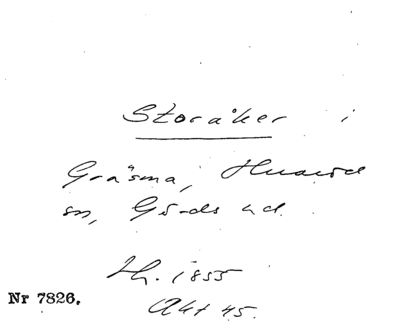 Storåker i
Gräsma, Huarod
sn, Gä-ds hd.
Lh. 1855
Akt 45.
Nr 7826.